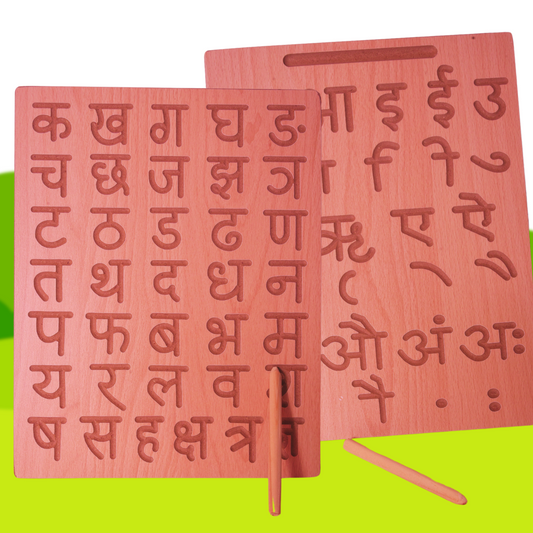 क ख ग घ ङ
च छ ज झ ञ
ट ठ ड ढ ण
त थ द ध न
प फ ब भ म
य र ल व
ष स ह क्ष त्र
इ ई उ
ि ी ु
ऋ ए ऐ
ृ े ै
औ अं अः
ौ ं ः